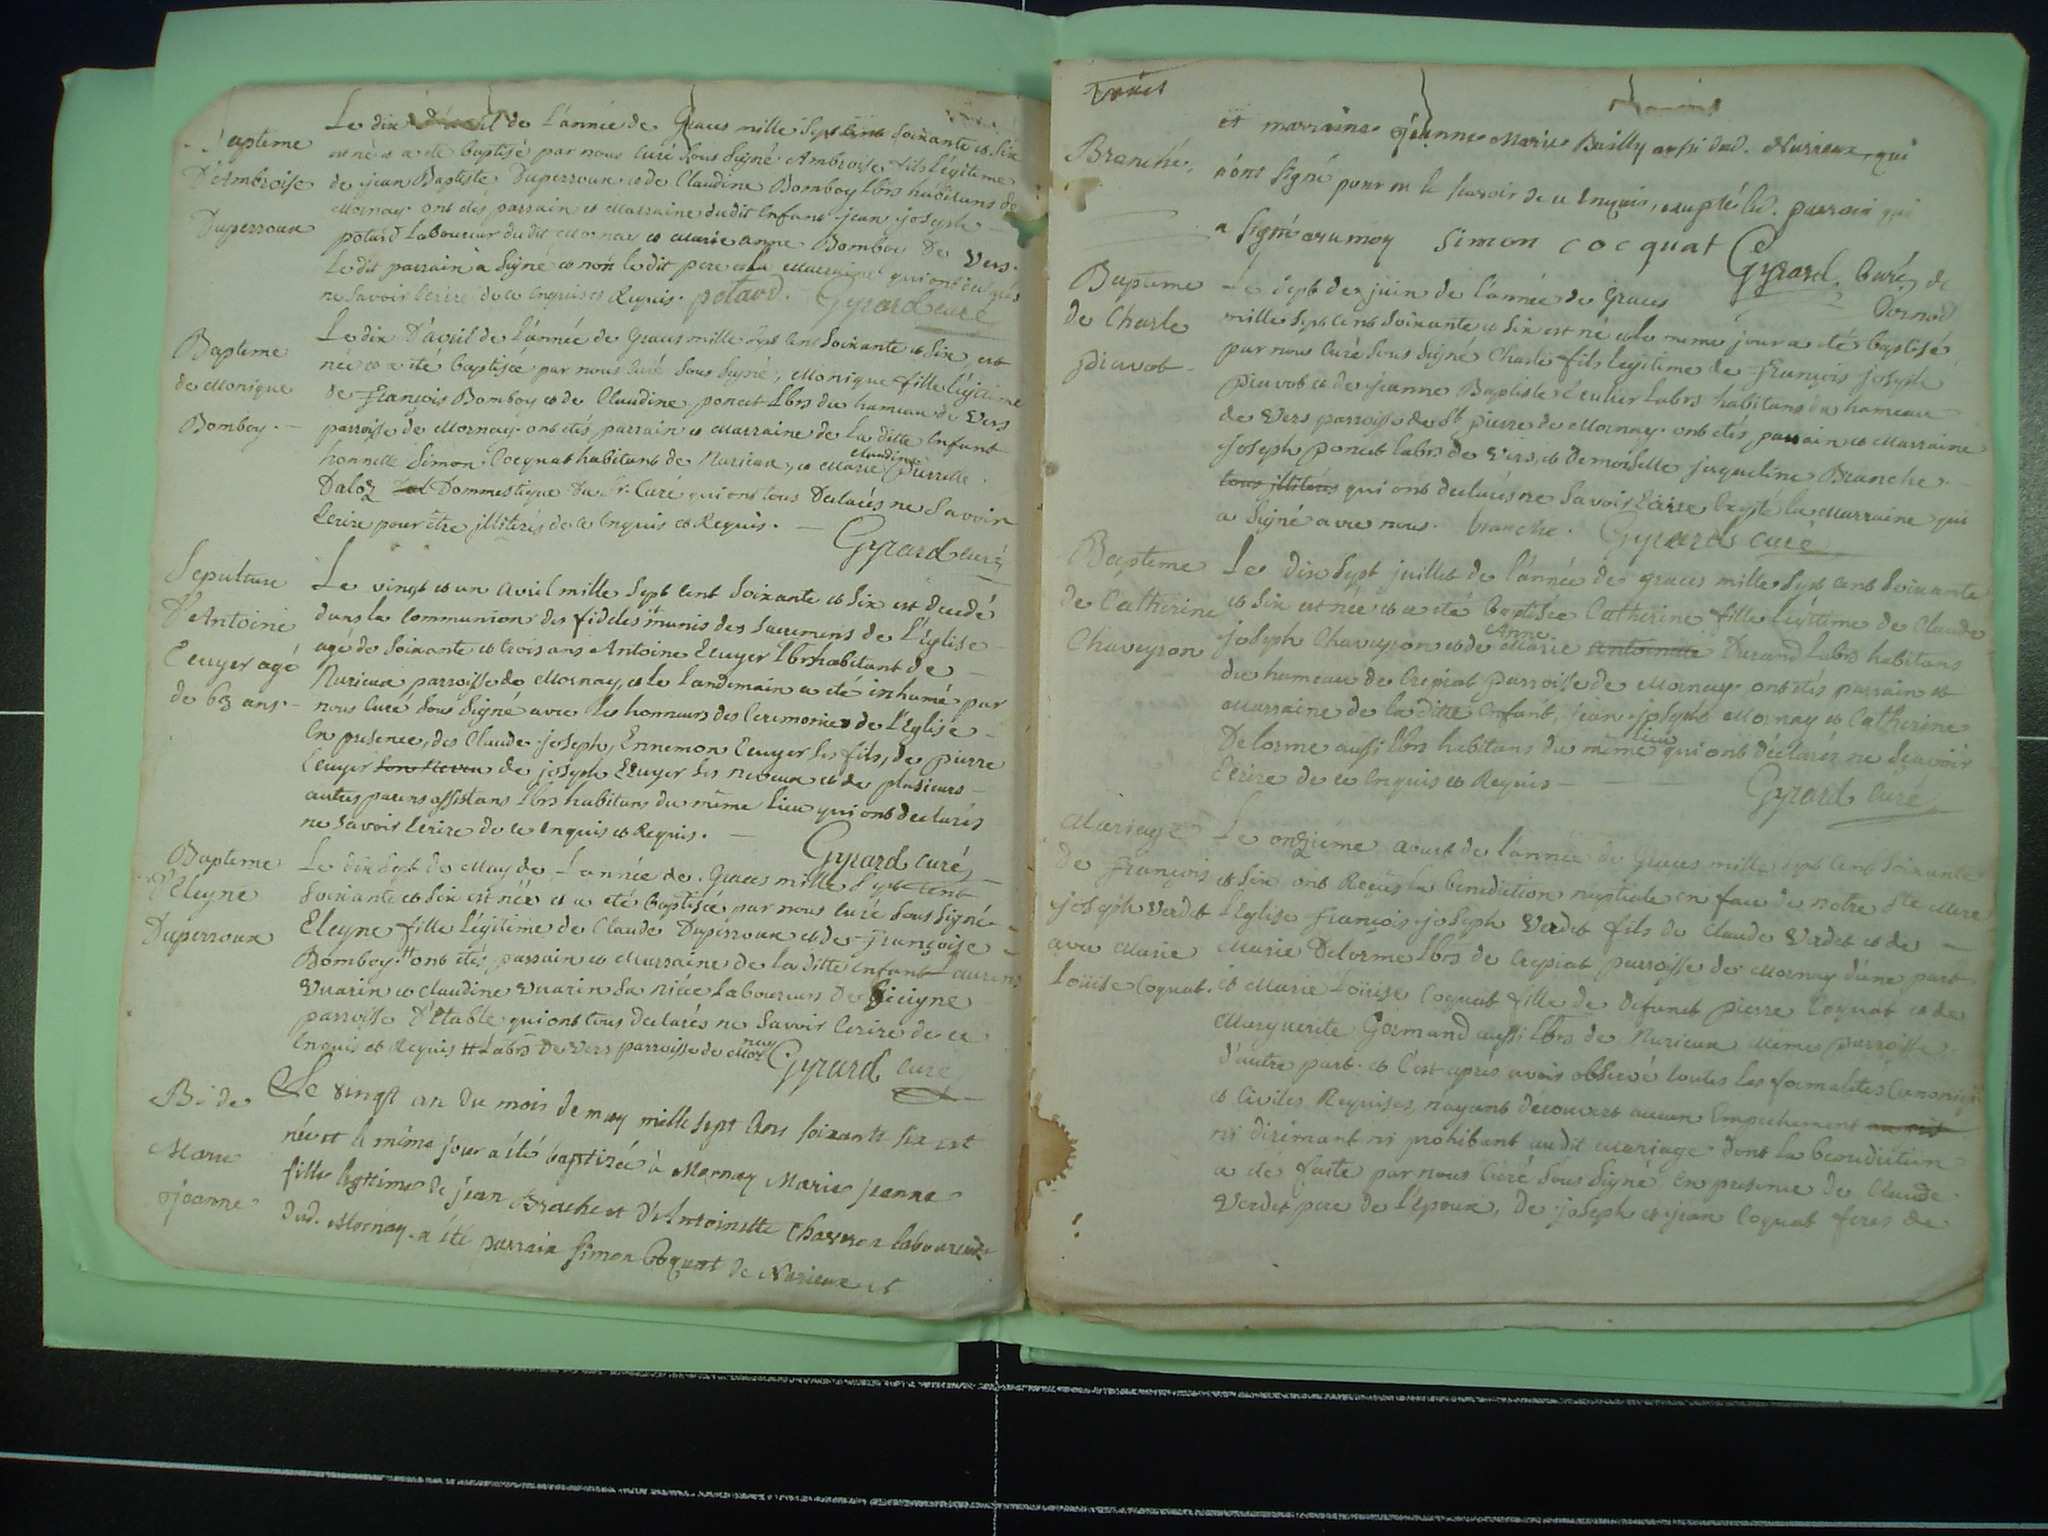 Bapteme
D'Ambroise
Duperroux
Le dix d'avril de L'année de Graces mille Sept cent soixante et six
est né et a été baptisé par nous Curé sous signé Ambroise fils légitime
de jean Baptiste Duperroux et de Claudine Bomboy lbrs habitans de
Mornay. ont étés parrain et Marraine dudit Enfant jean joseph
potard Laboureur dudit Mornay et Marie anne Bomboy De Vers.
Ledit parrain a signé et non le dit pere et la Marraine qui ont déclarés
ne savoir Ecrire de ce enquis et Requis. potard. Gyrard curé
Bapteme
de Monique
Bomboy.
Le dix D'avril de L'année de Graces mille sept cent Soixante et Six, est
née et a été baptisée par nous Curé sous signé, Monique fille légitime
de François Bomboy et de Claudine poncet lbrs du hameau de Vers
parroisse de Mornay. ont étés parrain et Marraine de la ditte Enfant
honnette Simon Cocquat habitant de Nurieux, et Marie Claudine Pierrette
Daloz Dommestique Du Sr. Curé qui ont tous Declarés ne savoir
Ecrire pour être illiterés de ce Enquis et Requis.
Gyrard curé
Sepulture
D'Antoine
Ecuyer agé
de 63 ans.
Le vingt et un avril mille Sept Cent Soixante et Six est decedé
dans la Communion des fideles munis des sacremens de L'Eglise
agé de soixante et trois ans Antoine Ecuyer lbr habitant de
Nurieux parroisse de Mornay, et le landemain a été inhumé par
nous Curé Sous Signé avec les honneurs des Ceremonies de L'Eglise
En presence, des Claude joseph, Ennemon Ecuyer ses fils, de pierre
Ecuyer son Neveu de joseph Ecuyer ses neveux et de plusieurs
autres parens assistans lbrs habitans du même lieu qui ont declarés
ne savoir Ecrire de ce enquis et Requis.
Gyrard curé
Bapteme
D'Eleyne
Duperroux
Le dix sept de May de L'année de Graces mille Sept cent
Soixante et Six est née et a été baptisée par nous curé sous signé
Eleyne fille Légitime de Claude Duperroux et de Françoise
Bomboy # ont étés parrain et Marraine de la ditte enfant Laurens
Vuarin et Claudine Vuarin sa niéce Laboureurs De Bicigne
parroisse D'Etable qui ont tous declarés ne Savoir Ecrire de ce
Enquis et Requis # Labrs De Vers parroisse de Mornay Gyrard curé
B. de
Marie
jeanne
Le vingt un du mois de may mille sept Cens soixante six est
née et le même jour a été baptizée à Mornay Marie jeanne
fille legitime de jean Branche et d'Antoinette Chaveron laboureurs
dud. Mornay. a été parrain Simon Cocquat de Nurieux et
Trois
Branche.
et marraine jeanne Marie Bailly aussi dud. Nurieux, qui
n'ont signé pour ne le scavoir de ce enquis, excepté led. parrain qui
a signé avec moy Simon Cocquat Gyrard, Curé de
Dornod
Bapteme
de Charle
piavot
Le Sept de juin de L'année de Graces
mille Sept cent Soixante et Six est né et le meme jour a été baptisé
par nous Curé sous signé Charle fils Legitime de François joseph
piavot et de jeanne Baptiste Ecuyer Labrs habitans du hameau
de Vers parroisse de St. pierre de Mornay. ont étés parrain et Marraine
joseph poncet labrs de Vers, et Demoiselle jaqueline Branche.
tous illiterés qui ont declarés ne savoir Ecrire Excepté la Marraine qui
a signé avec nous. branche. Gyrard curé
Bapteme
de Catherine
Chaveyron
Le dix Sept juillet de l'année de graces mille Sept cent Soixante
et Six est née et a été baptisée Catherine fille Légitime de Claude
joseph Chaveyron et de Marie Anne antoinette Durand Labrs habitans
du hameau de Crepiat parroisse de Mornay. ont étés parrain et
Marraine de la ditte enfant, jean joseph Mornay et Catherine
Delorme aussi lbrs habitans du même lieu qui ont déclarés ne sçavoir
Ecrire de ce Enquis et Requis
Gyrard Curé
Mariage
de François
joseph Verdet
avec Marie
Loüise Coquat.
Le onzième aoust de l'année de Graces mille sept cent soixante
et Six ont Reçus la benediction nuptiale en face de notre Ste Mere
L'église François joseph Verdet fils de Claude Verdet et de
Marie Delorme lbrs de Crepiat parroisse de Mornay d'une part
et Marie Loüise Coquat fille de defunct pierre Coquat et de
Marguerite Gormand aussi lbrs de Nurieux même parroisse
d'autre part. et C'est après avoir observé toutes les formalites Canoniques
et Civiles Requises, n'ayant découvert aucun Empechement
ni dirimant ni prohibant audit Mariage dont la benediction
a été faite par nous Curé Sous Signé En presence de Claude
Verdet pere de L'Epoux, de joseph et jean Coquat freres de